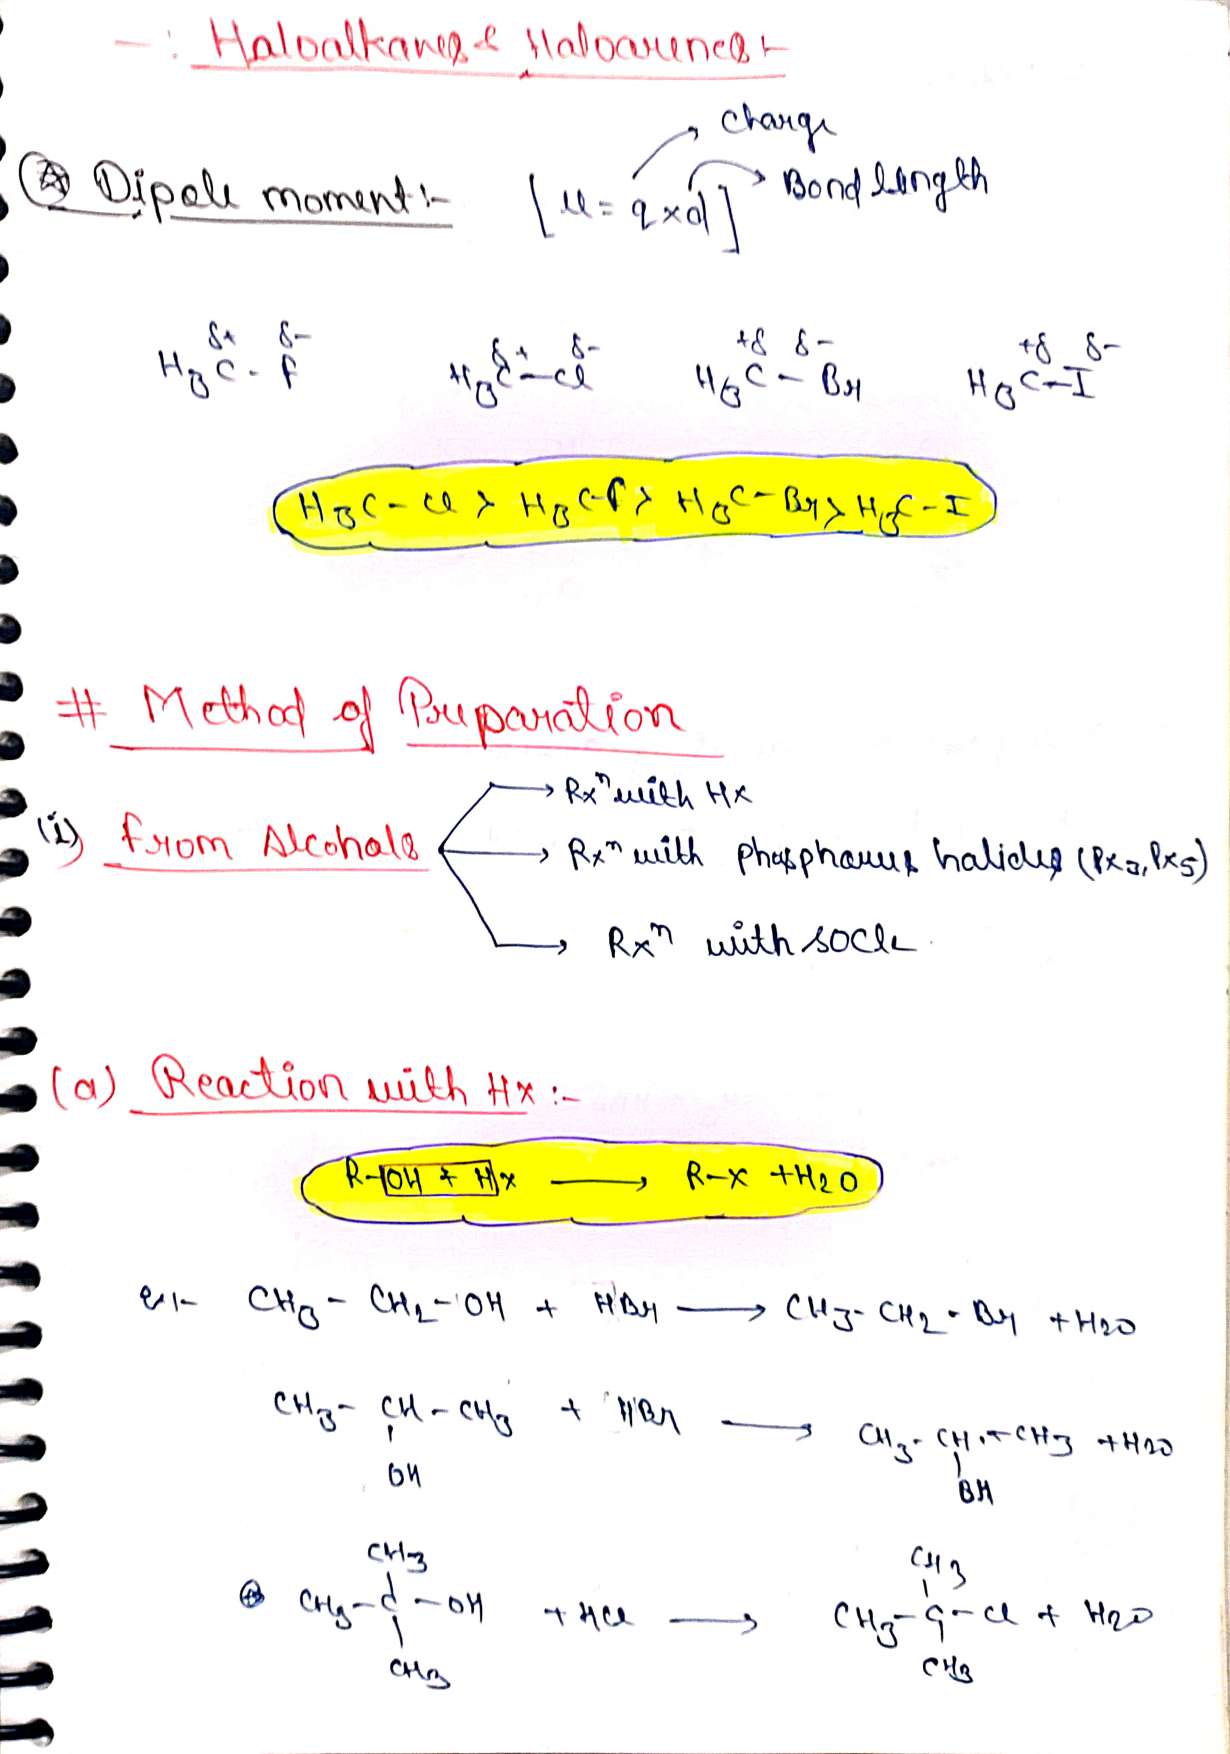 -: Haloalkanes & Haloarenes :-
Charge
Dipole moment :- [μ = q × d] Bond length
H3C^δ+ - F^δ- H3C^δ+ - Cl^δ- H3C^+δ - Br^δ- H3C^+δ - I^δ-
H3C - Cl > H3C - F > H3C - Br > H3C - I
# Method of Preparation
Rxⁿ with HX
(i) from Alcohals Rxⁿ with phosphorus halides (PX3, PX5)
Rxⁿ with SOCl2
(a) Reaction with HX :-
R-OH + HX ⟶ R-X + H2O
ex:- CH3 - CH2 - OH + HBr ⟶ CH3 - CH2 - Br + H2O
CH3 - CH - CH3 + HBr ⟶ CH3 - CH - CH3 + H2O
OH Br
CH3 CH3
CH3 - C - OH + HCl ⟶ CH3 - C - Cl + H2O
CH3 CH3